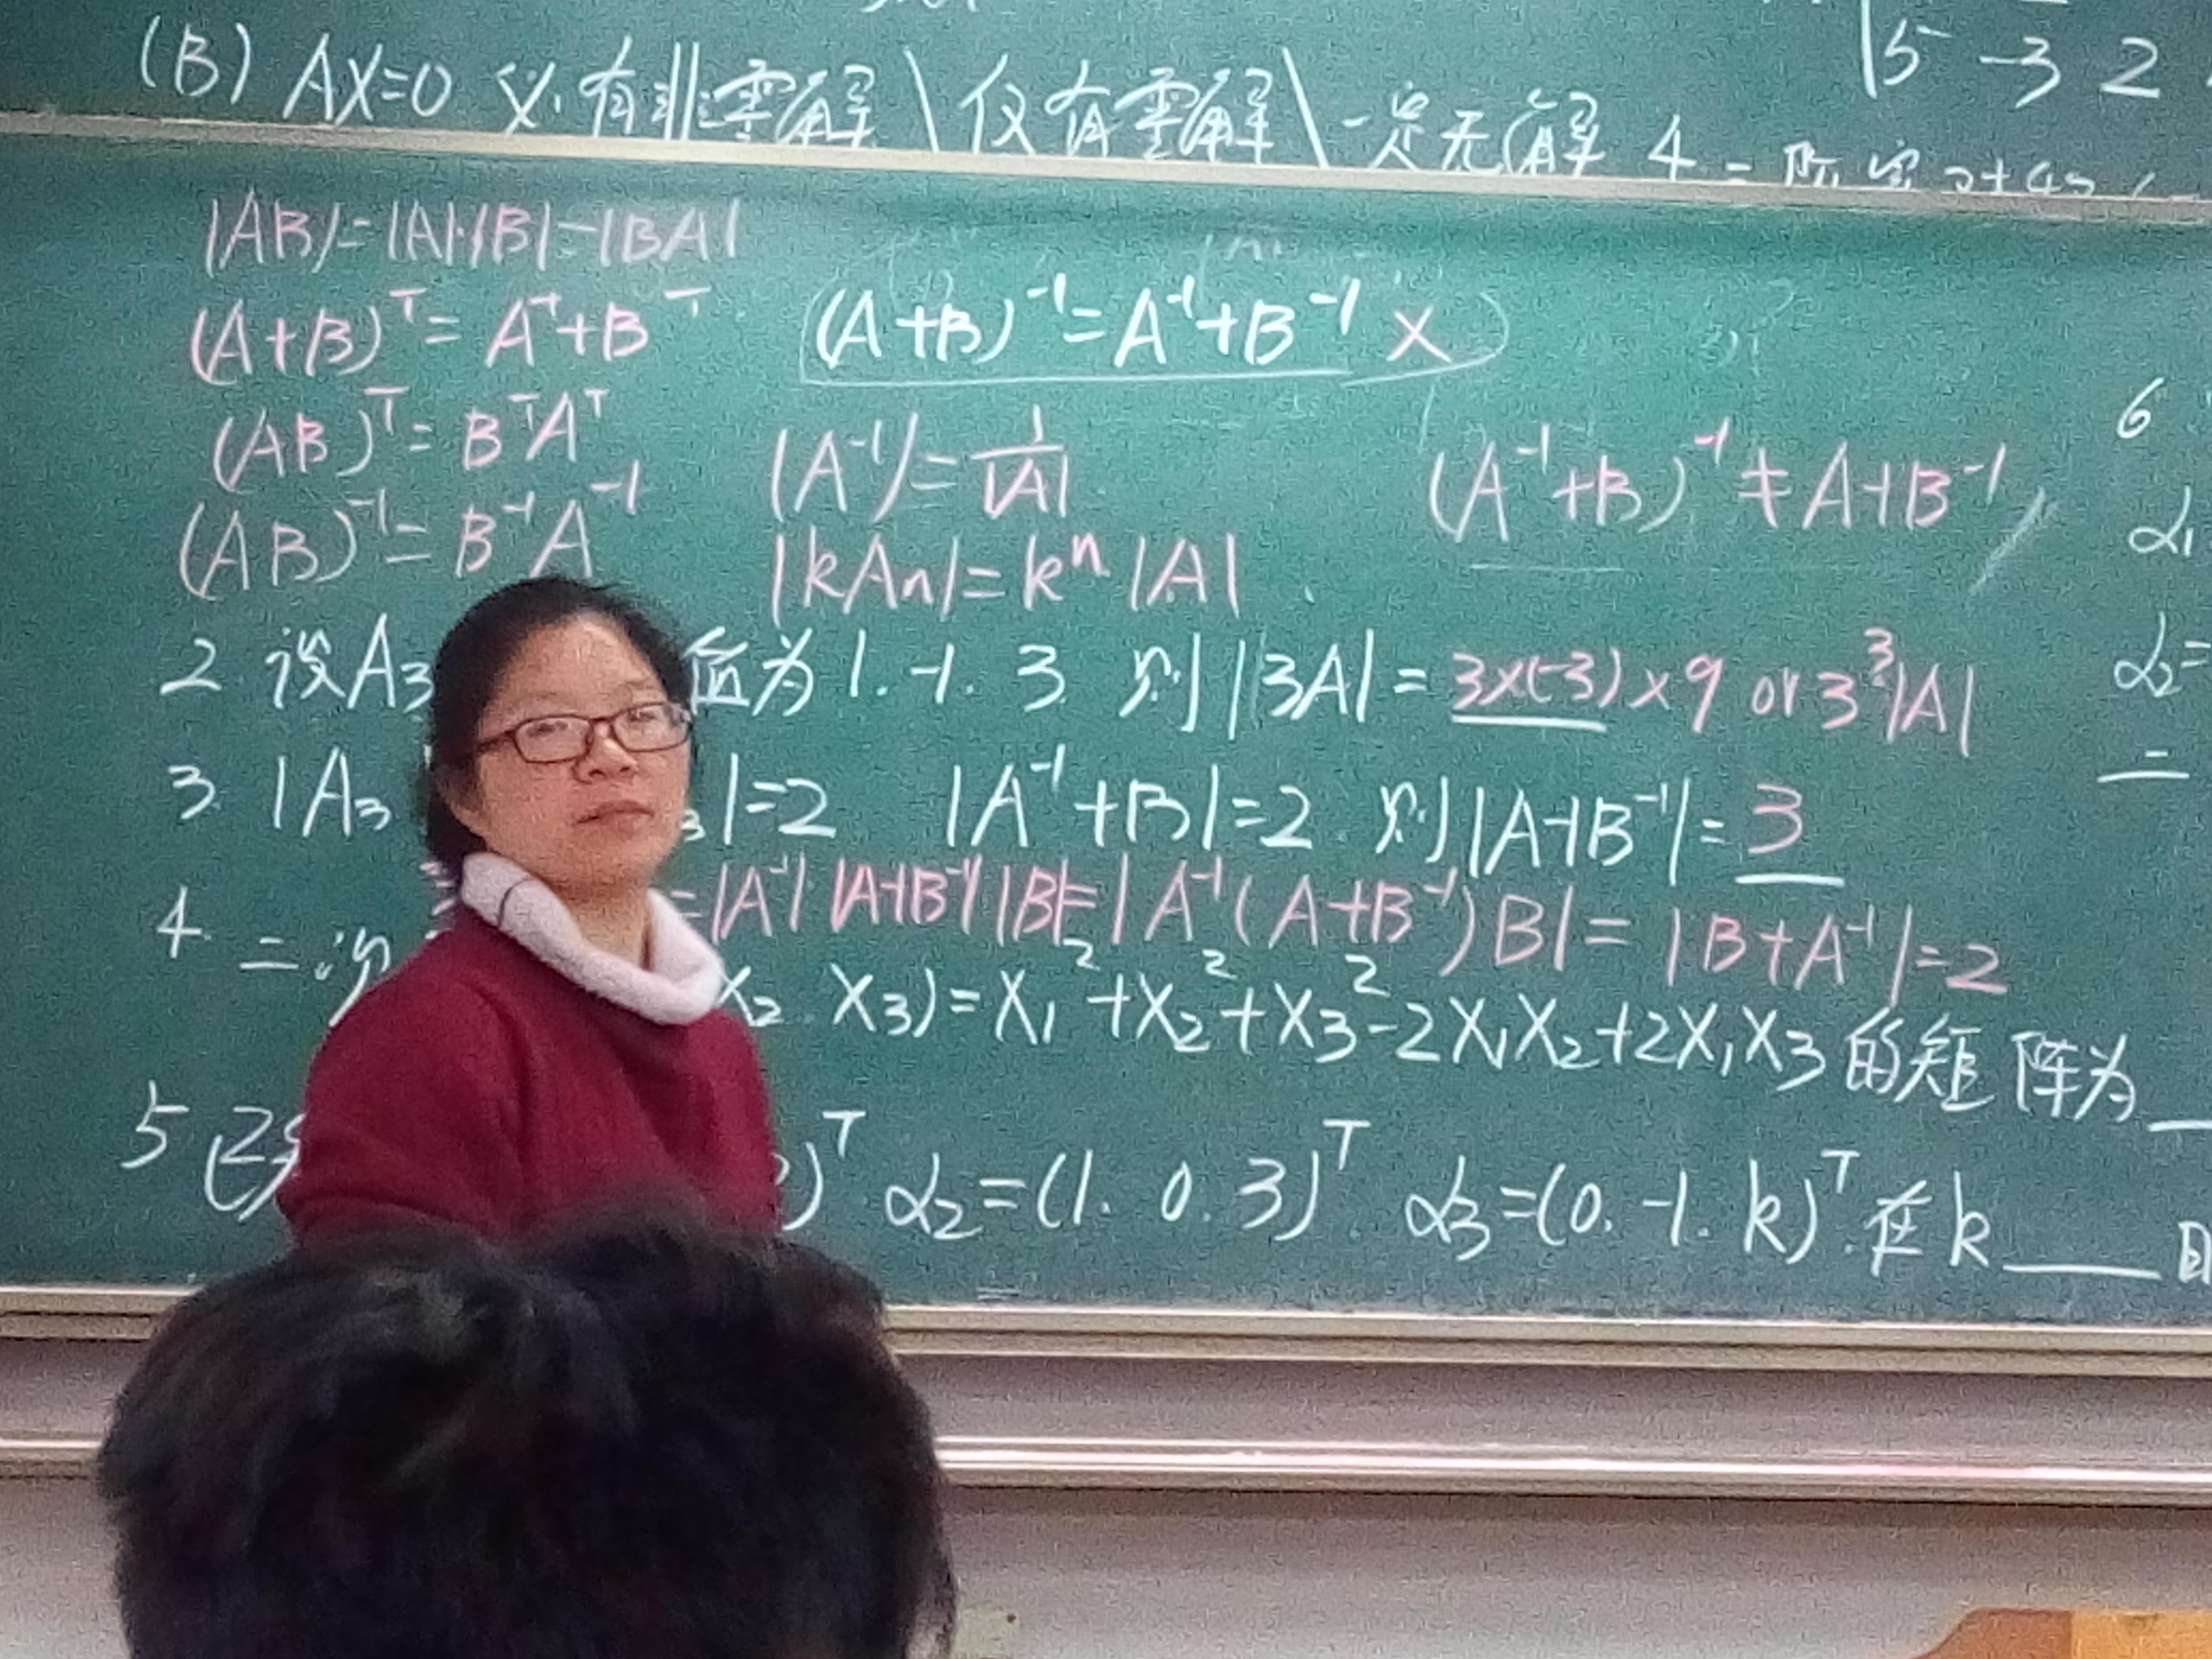 (B) AX=0 必有非零解 \ 仅有零解 \ 一定无解
5 -3 2
4
|AB|=|A|·|B|=|BA|
(A+B)ᵀ= Aᵀ+Bᵀ
(A+B)⁻¹=A⁻¹+B⁻¹ X
(AB)ᵀ= BᵀAᵀ
|A⁻¹|= 1/|A|
(A⁻¹+B)⁻¹ ≠ A+B⁻¹
6
(AB)⁻¹= B⁻¹A⁻¹
|kAn|= kⁿ |A|
α₁
2 设A₃ 值为 1. -1. 3 则 |3A| = 3×(-3)×9 or 3³|A|
α₂=
3 |A₃ |=2 |A⁻¹+B|=2 则 |A+B⁻¹|= 3
=|A⁻¹| |A+B⁻¹| |B|=|A⁻¹(A+B⁻¹)B|= |B+A⁻¹|=2
4 二次 X₂ X₃)= X₁²+X₂²+X₃²-2X₁X₂+2X₁X₃ 的矩阵为
5 已 )ᵀ α₂=(1. 0. 3)ᵀ α₃=(0. -1. k)ᵀ. 在 k